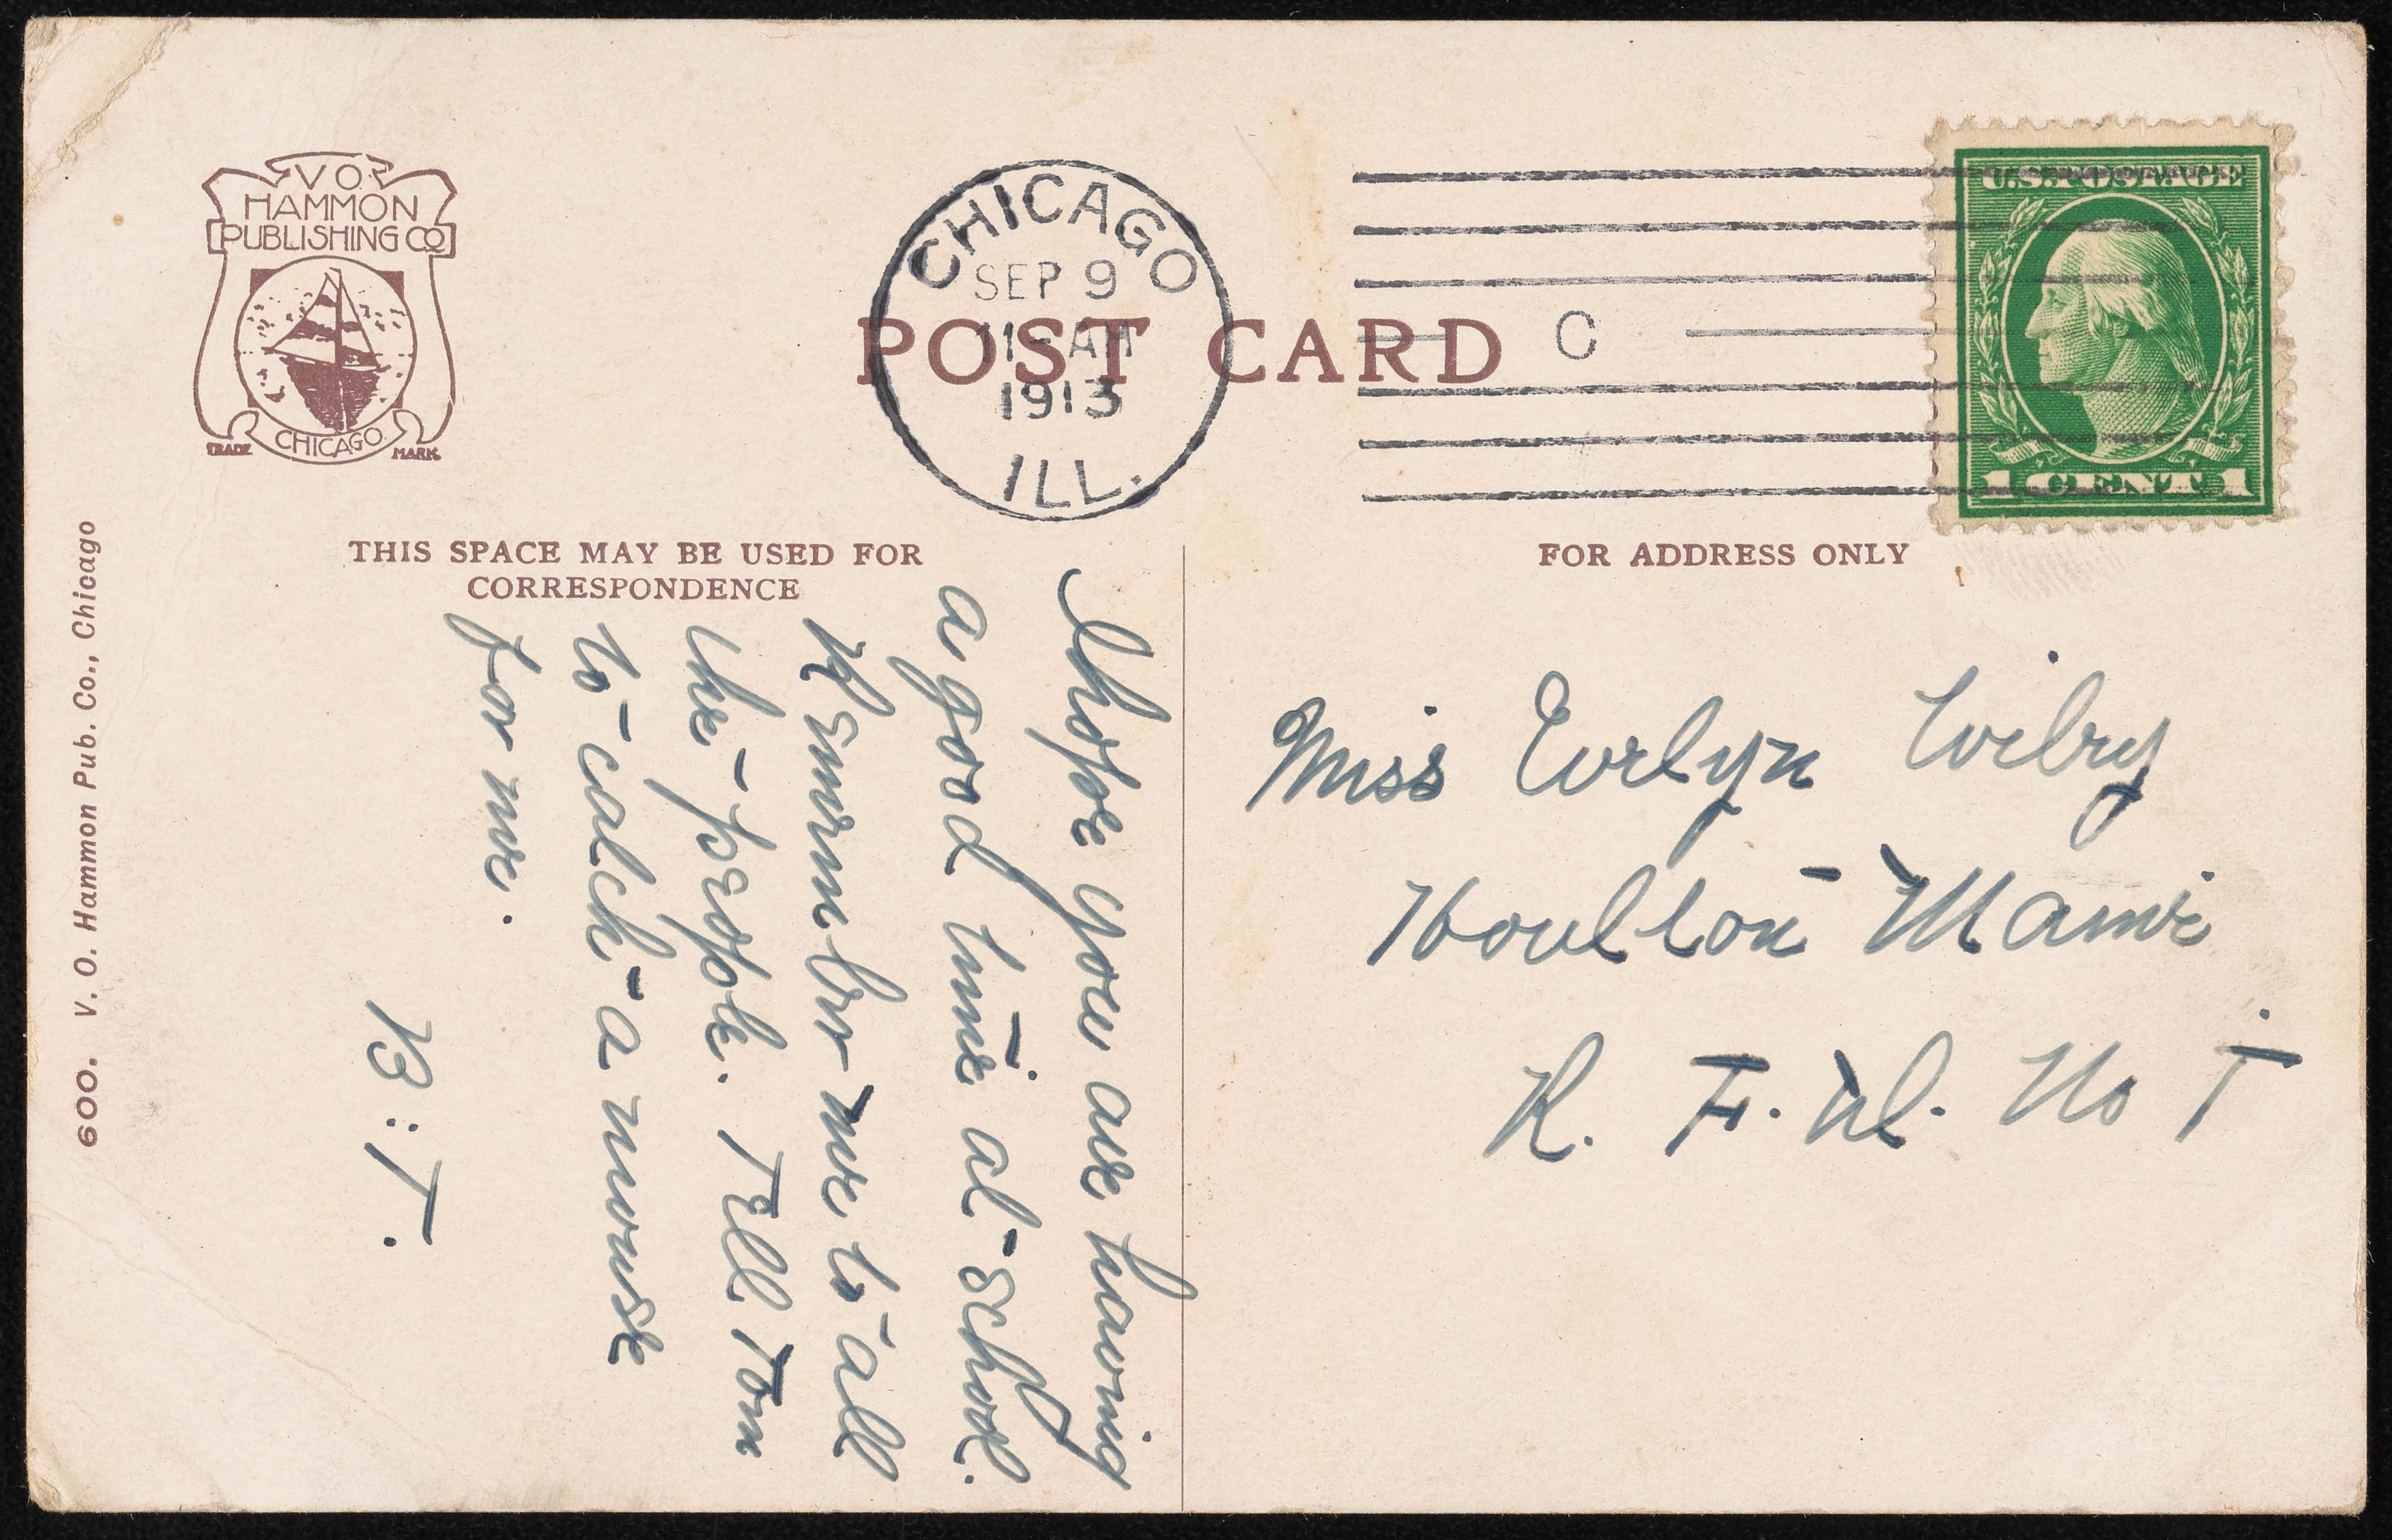 V. O.
HAMMON
PUBLISHING CO
CHICAGO
TRADE MARK
CHICAGO
SEP 9
11 - AM
1913
ILL.
C
U.S. POSTAGE
1 CENT 1
POST CARD
THIS SPACE MAY BE USED FOR
CORRESPONDENCE
FOR ADDRESS ONLY
600. V. O. Hammon Pub. Co., Chicago
I hope you are having
a good time at school.
Remember me to all
the people. Tell Tom
to catch a mouse
for me.
B. T.
Miss Evelyn
Houlton Maine
R. F. D. No